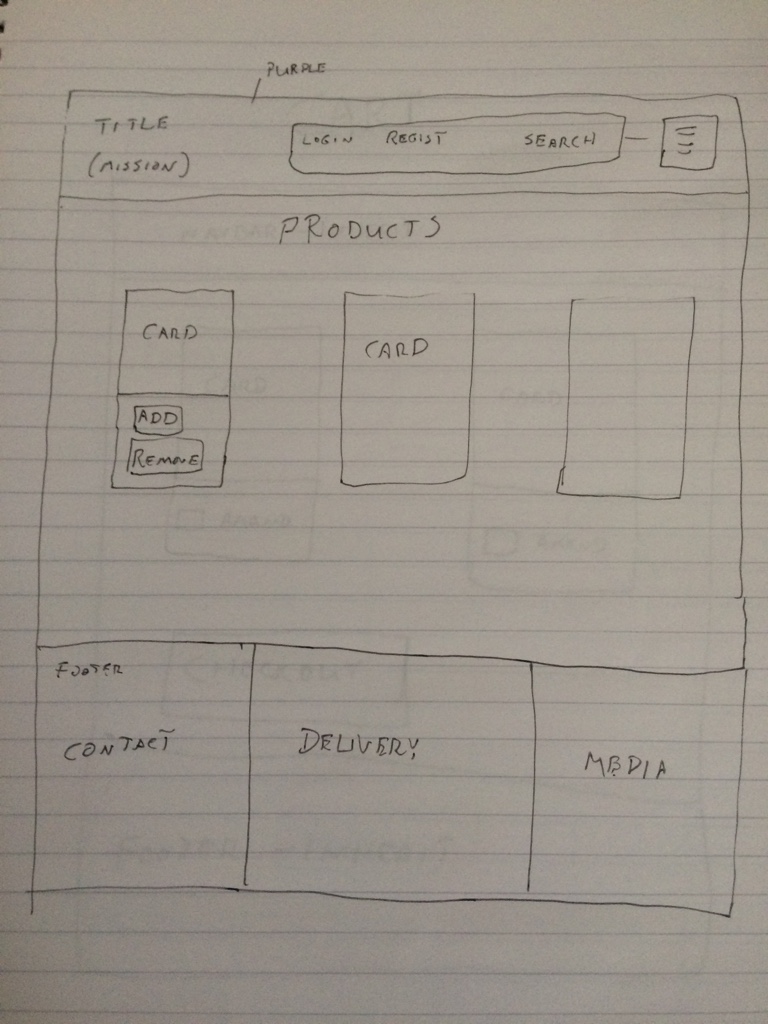 PURPLE
TITLE
(MISSION)
LOGIN REGIST SEARCH
PRODUCTS
CARD
CARD
ADD
REMOVE
FOOTER
CONTACT
DELIVERY
MEDIA